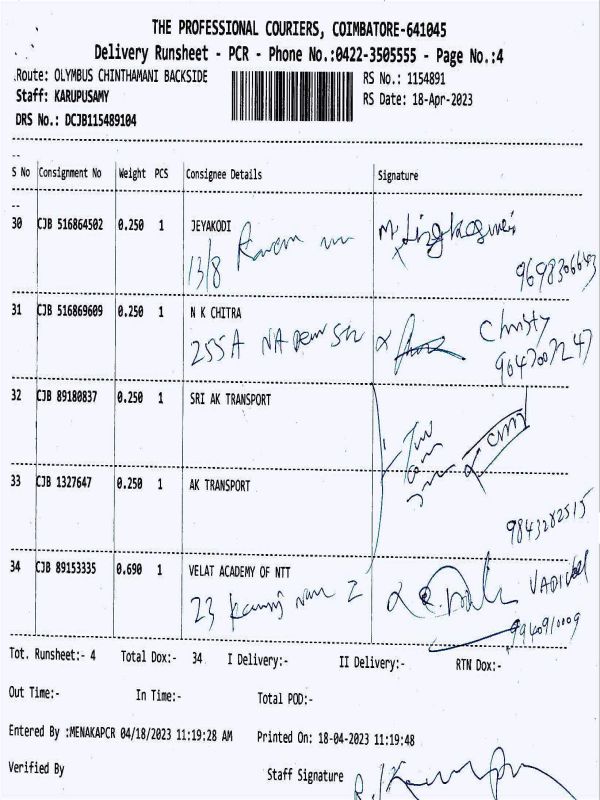 THE PROFESSIONAL COURIERS, COIMBATORE-641045
Delivery Runsheet - PCR - Phone No.:0422-3505555 - Page No.:4
Route: OLYMBUS CHINTHAMANI BACKSIDE RS No.: 1154891
Staff: KARUPUSAMY RS Date: 18-Apr-2023
DRS No.: DCJB115489104
S No Consignment No Weight PCS Consignee Details Signature
30 CJB 516864502 0.250 1 JEYAKODI
13/8
31 CJB 516869609 0.250 1 N K CHITRA
255A Christy
32 CJB 89180837 0.250 1 SRI AK TRANSPORT
33 CJB 1327647 0.250 1 AK TRANSPORT
9843282515
34 CJB 89153335 0.690 1 VELAT ACADEMY OF NTT
23
Tot. Runsheet:- 4 Total Dox:- 34 I Delivery:- II Delivery:- RTN Dox:-
Out Time:- In Time:- Total POD:-
Entered By :MENAKAPCR 04/18/2023 11:19:28 AM Printed On: 18-04-2023 11:19:48
Verified By Staff Signature